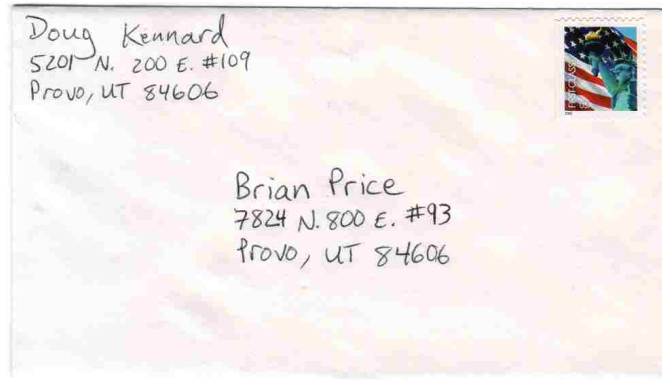 Doug Kennard
5201 N. 200 E. #109
Provo, UT 84606
Brian Price
7824 N. 800 E. #93
Provo, UT 84606